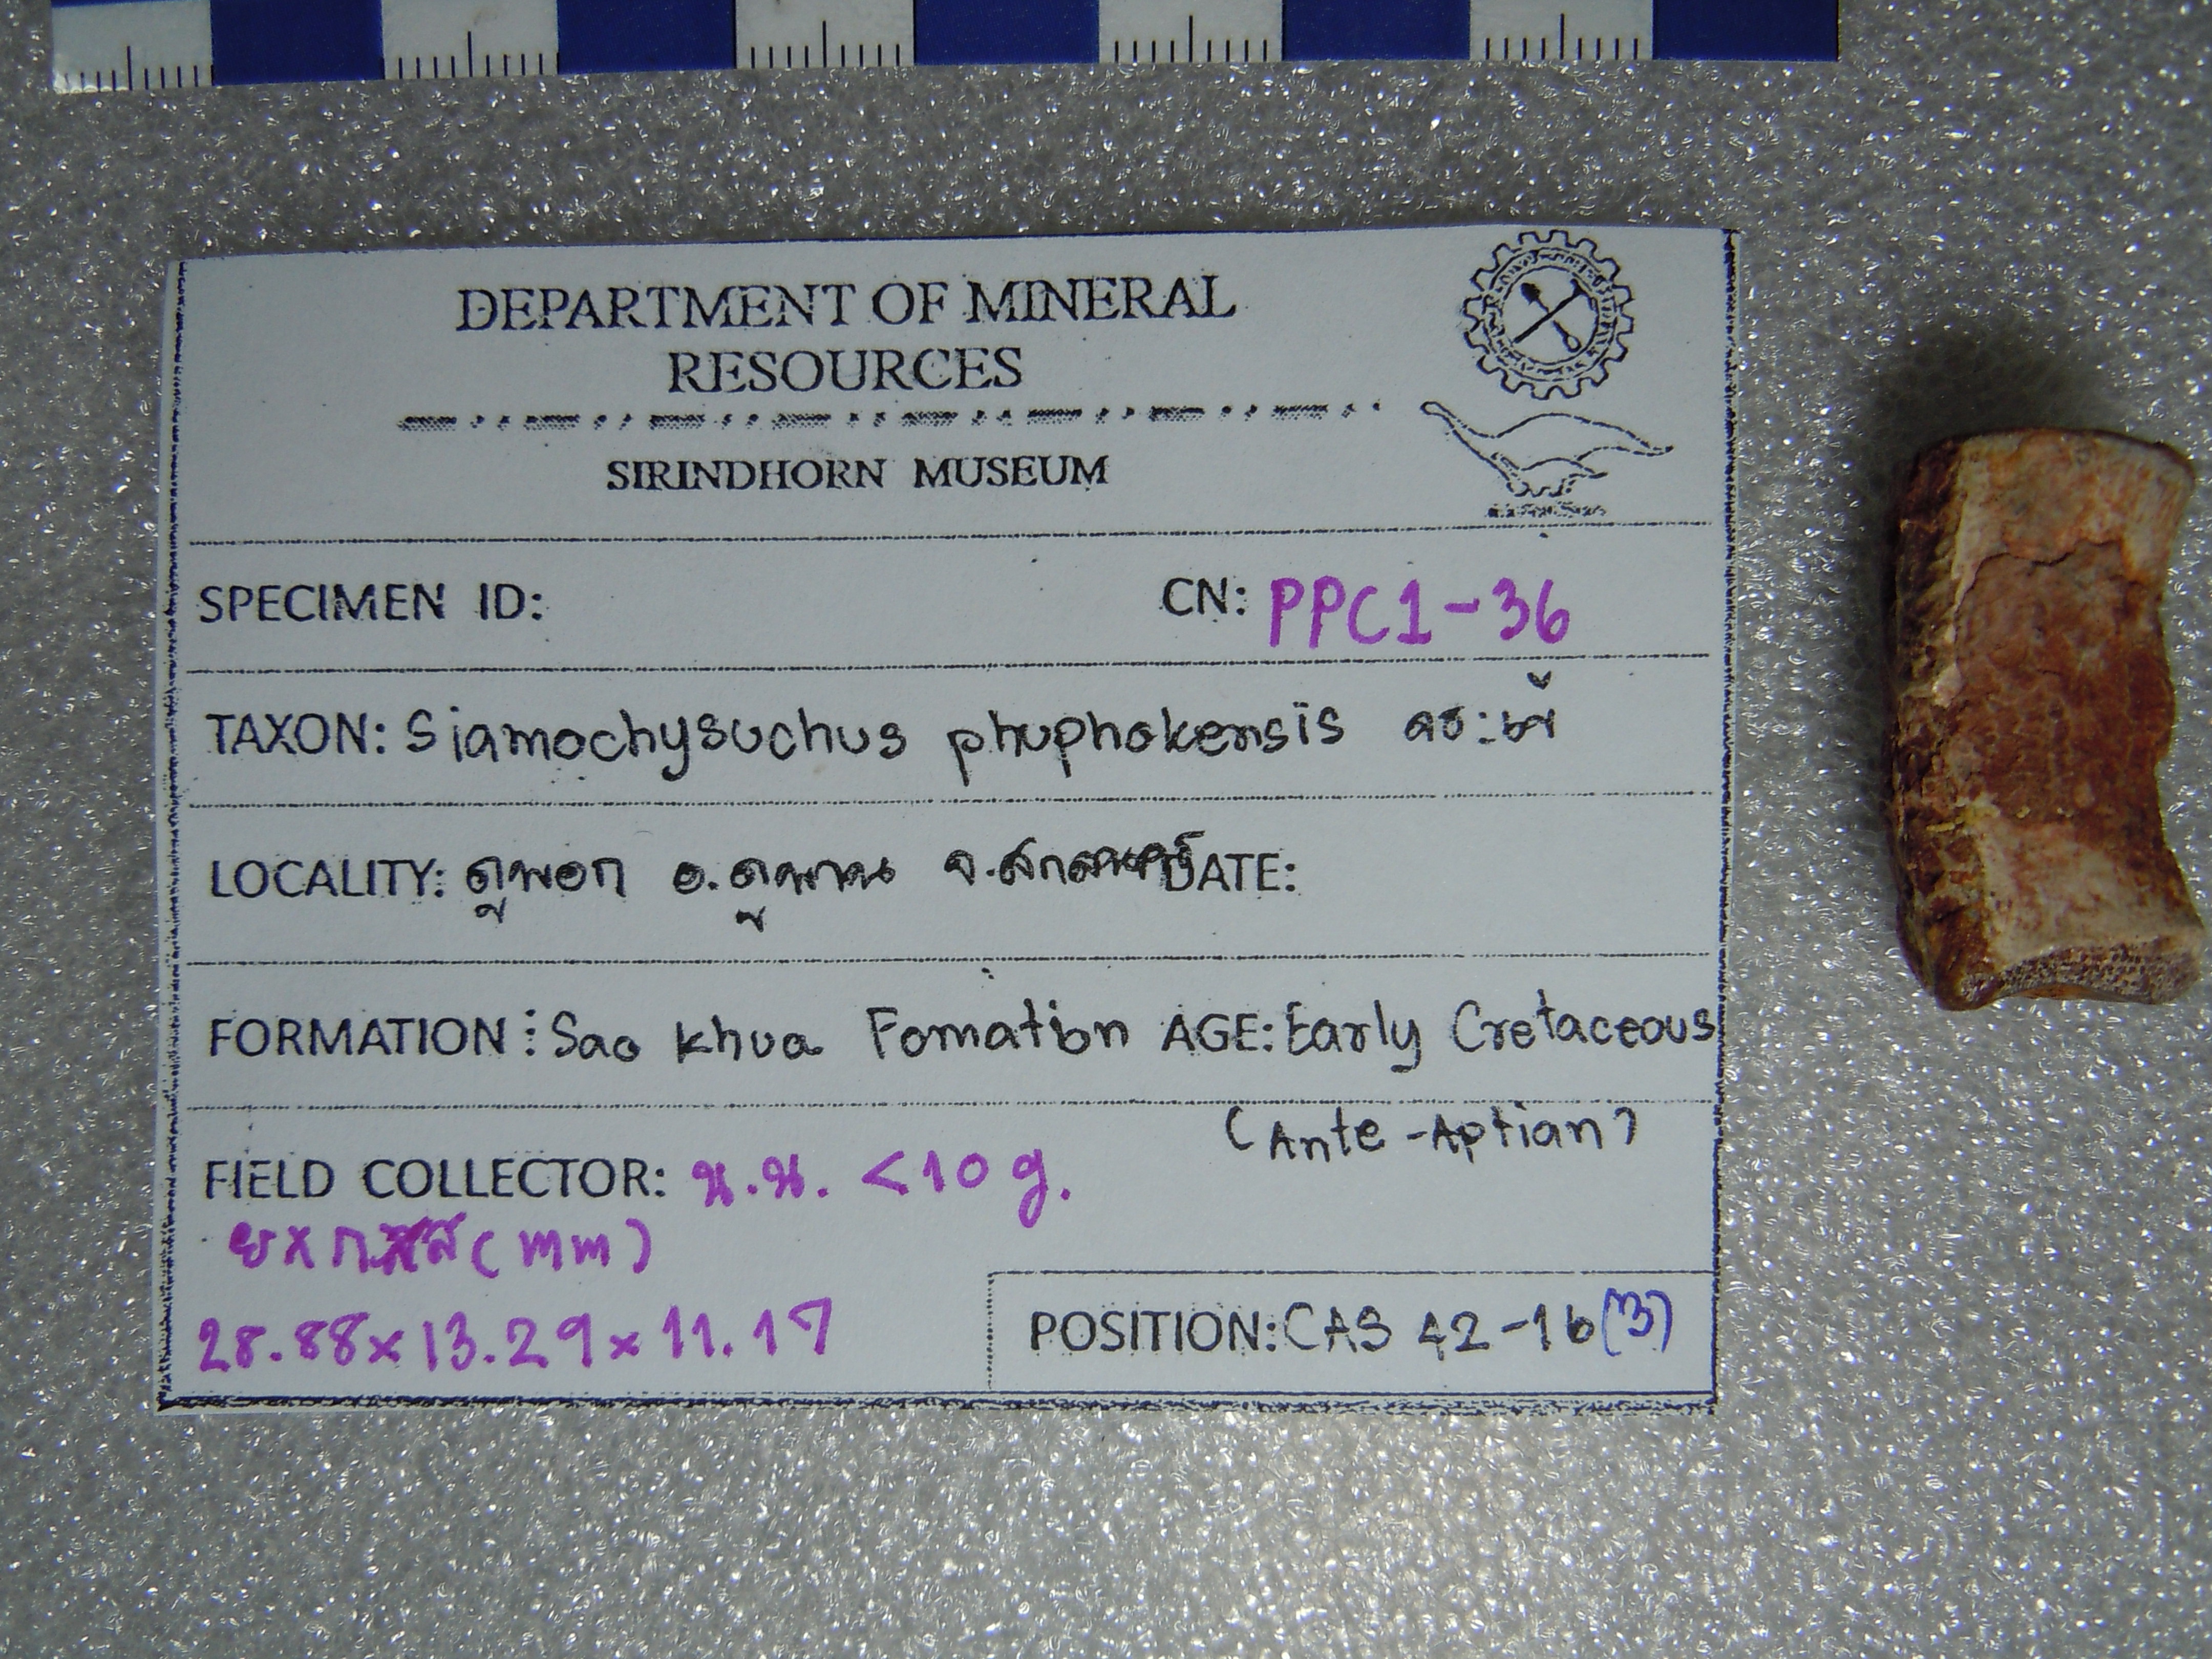 DEPARTMENT OF MINERAL
RESOURCES
SIRINDHORN MUSEUM
SPECIMEN ID: CN: PPC1-36
TAXON: Siamochysuchus phuphokensis
LOCALITY: ภูพอก อ.ภูพาน จ. DATE:
FORMATION: Sao khua Fomation AGE: Early Cretaceous
(Ante-Aptian)
FIELD COLLECTOR: น.น. <10 g.
(mm)
28.88x13.29x11.17
POSITION: CAS 42-16(3)